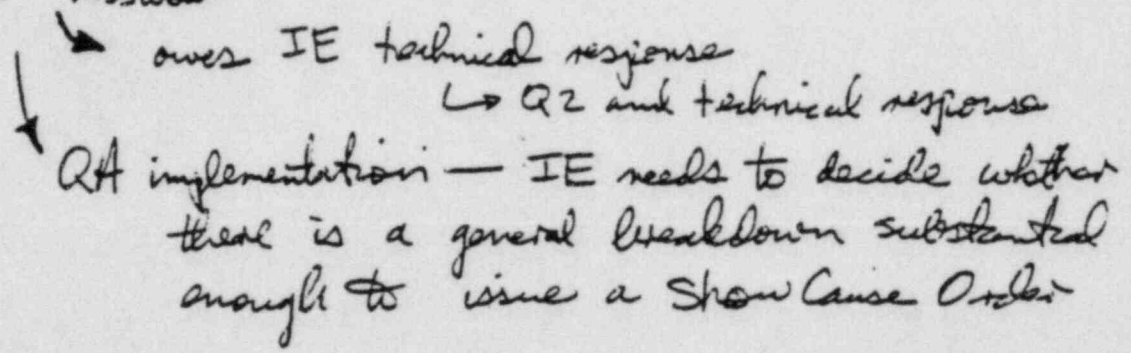 owes IE technical response
↳ Q2 and technical response
QA implementation — IE needs to decide whether
there is a general breakdown substantial
enough to issue a Show Cause Order